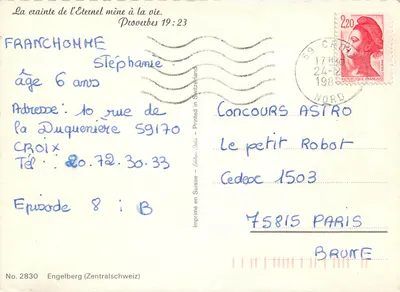 La crainte de l'Eternel mène à la vie.
Proverbes 19 : 23
FRANCHOMME
Stéphanie
âge 6 ans
Adresse : 10 rue de
la Duquenière 59170
CROIX
Tél : 20.72.30.33
Episode 8 : B
CONCOURS ASTRO
Le petit Robot
Cedex 1503
75815 PARIS
BRUNE
2,20
59 CROIX
17H
24-
198
NORD
Imprimé en Suisse
Printed in Switzerland
No. 2830 Engelberg (Zentralschweiz)